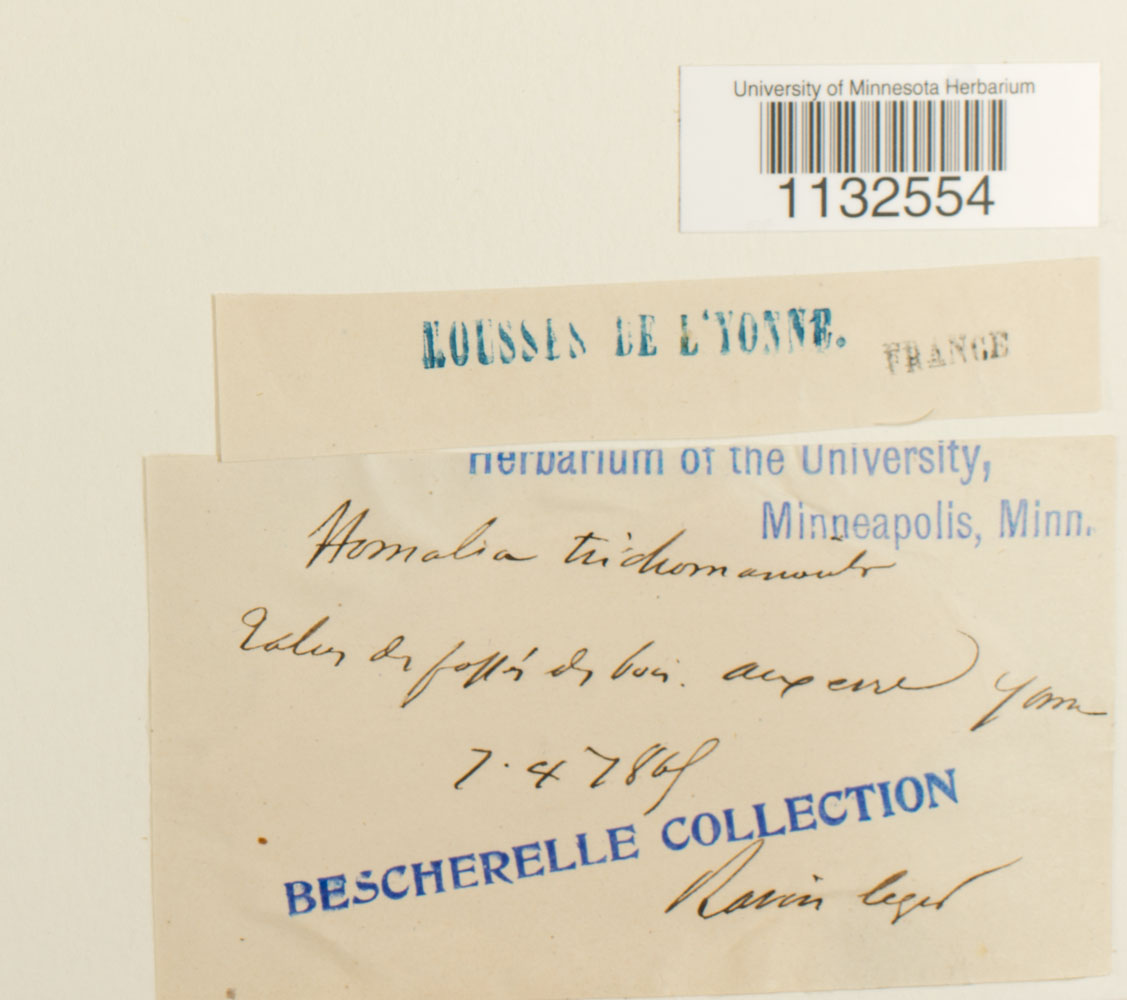 University of Minnesota Herbarium
1132554
MOUSSES DE L'YONNE.
FRANCE
Herbarium of the University,
Minneapolis, Minn.
Homalia trichomanoides
Talus de fossés de bois. auxerre yonne
7. 4 7869
BESCHERELLE COLLECTION
Ravin legit